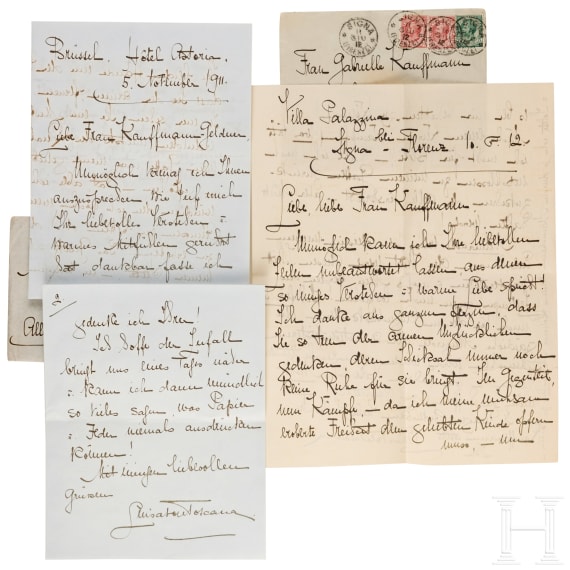 Brüssel. Hôtel Astoria.
5. November 1911.
Liebe Frau Kauffmann-Geldner
Unmöglich vermag ich Ihnen
auszusprechen, wie tief mich
Ihr liebevolles Verstehen -
warmes Mitfühlen gerührt
hat, dankbar fasse ich
2
gedenke ich Ihrer!
Ich hoffe der Zufall
bringt uns eines Tages näher
- kann ich dann mündlich
so vieles sagen, was Papier
- Feder niemals ausdrücken
können!
Mit innigen liebevollen
Grüssen
Luisa von Toscana
SIGNA
Frau Gabrielle Kauffmann
Villa Palazzina
Signa bei Florenz
Liebe, liebe Frau Kauffmann.
Unmöglich kann ich Ihre liebevollen
Zeilen unbeantwortet lassen aus denen
so inniges Verstehen - warme Liebe spricht.
Ich danke aus ganzem Herzen, dass
Sie so treu der armen Unglücklichen
gedenken, deren Schicksal immer noch
keine Ruhe für sie bringt. Im Gegenteil,
neue Kämpfe, - da ich meine mühsam
eroberte Freiheit dem geliebten Kinde opfern
muss, - um
H